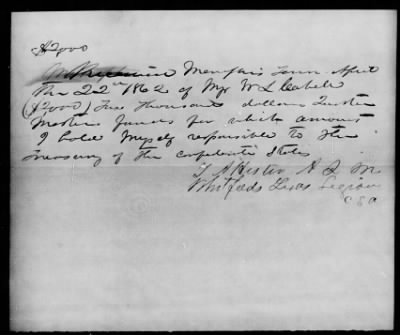 $2000
Received Memphis Tenn April
the 22nd 1862 of Mjr W L Cabell
($2000) Two thousand dollars Quarter
Masters funds for which amount
I hold Myself responsible to the
treasury of the confederate States
A Q M
Whitfields Texas Legion
C S A